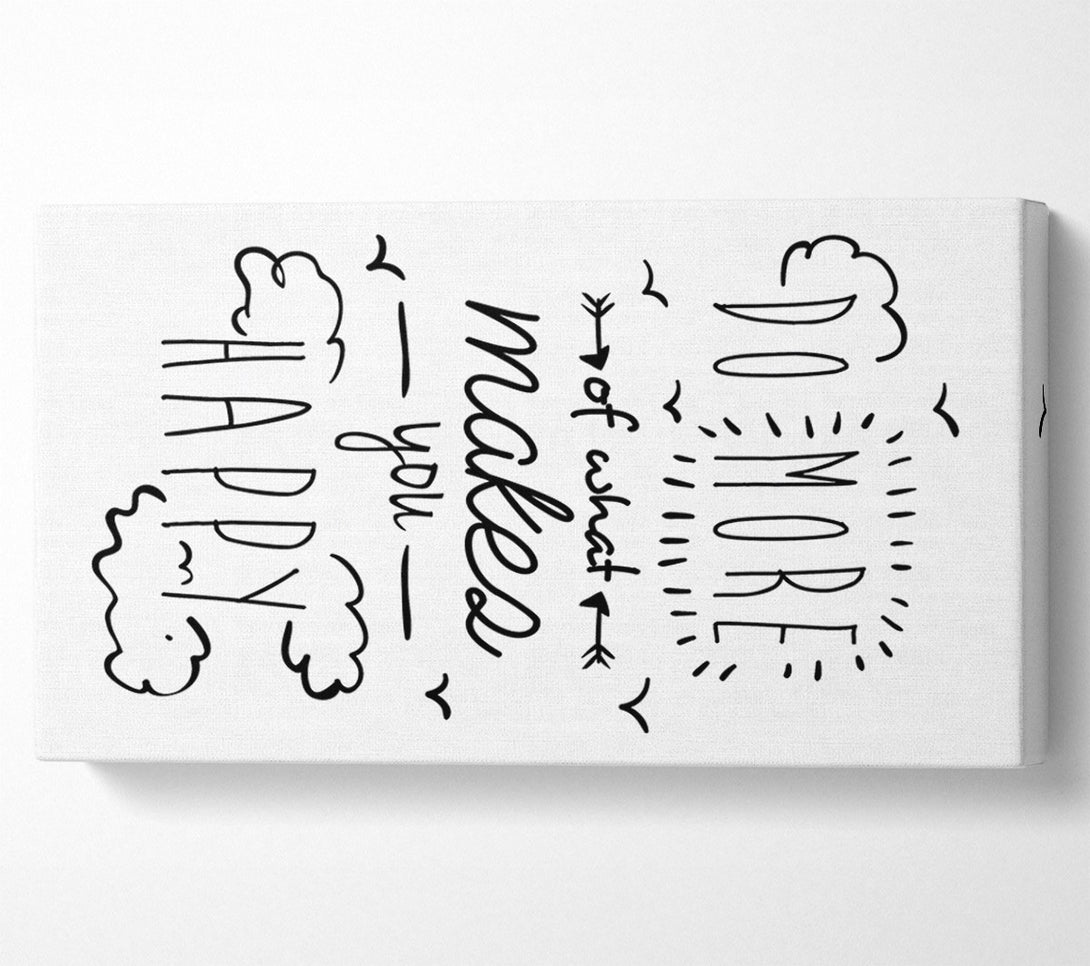 DO MORE
of what
makes
you
HAPPY